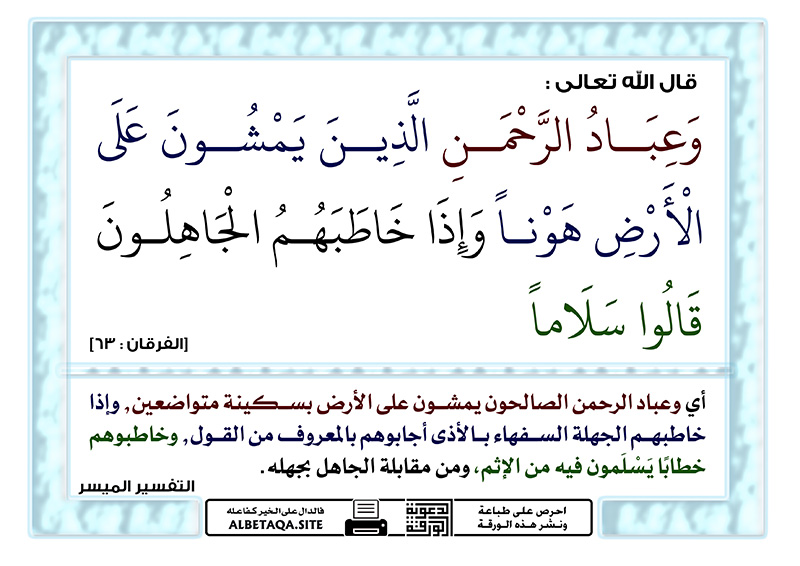 قال الله تعالى :
وَعِبَادُ الرَّحْمَنِ الَّذِينَ يَمْشُونَ عَلَى
الْأَرْضِ هَوْناً وَإِذَا خَاطَبَهُمُ الْجَاهِلُونَ
قَالُوا سَلَاماً
[الفرقان : ٦٣]
أي وعباد الرحمن الصالحون يمشون على الأرض بسكينة متواضعين, وإذا
خاطبهم الجهلة السفهاء بالأذى أجابوهم بالمعروف من القول, وخاطبوهم
خطابًا يَسْلَمون فيه من الإثم، ومن مقابلة الجاهل بجهله.
التفسير الميسر
احرص على طباعة
ونشر هذه الورقة
الورقة
الدعوية
فالدال على الخير كفاعله
ALBETAQA.SITE